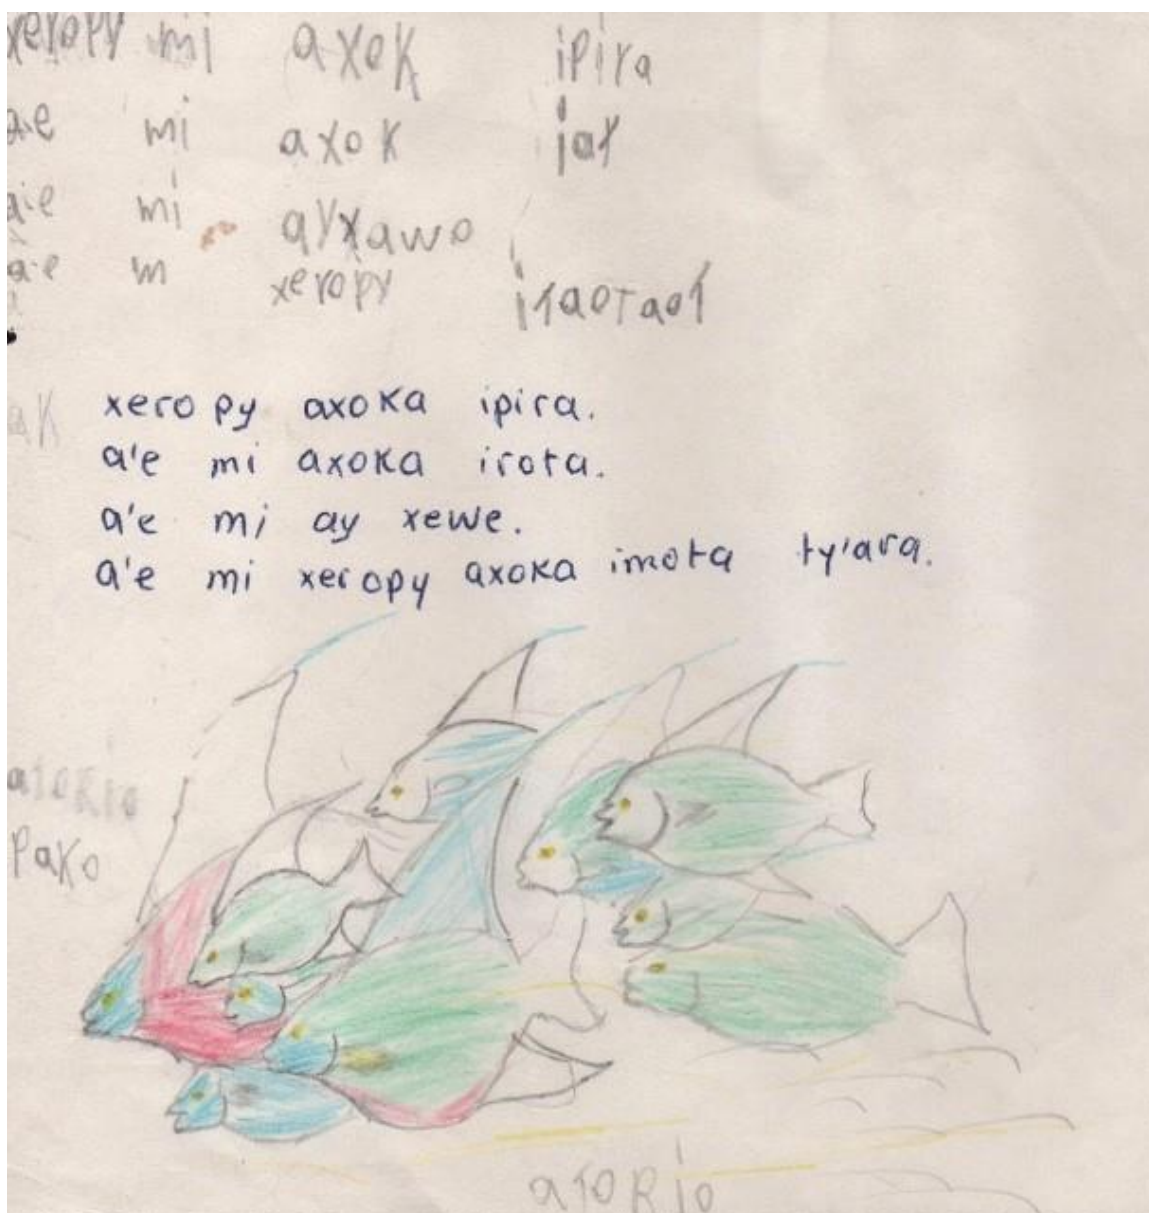 xeropy mi axok ipira
a'e mi axok jat
a'e mi ayxawo
a'e m xeropy
xeropy axoka ipira.
a'e mi axoka irota.
a'e mi ay xewe.
a'e mi xeropy axoka imota ty'ara.
pako